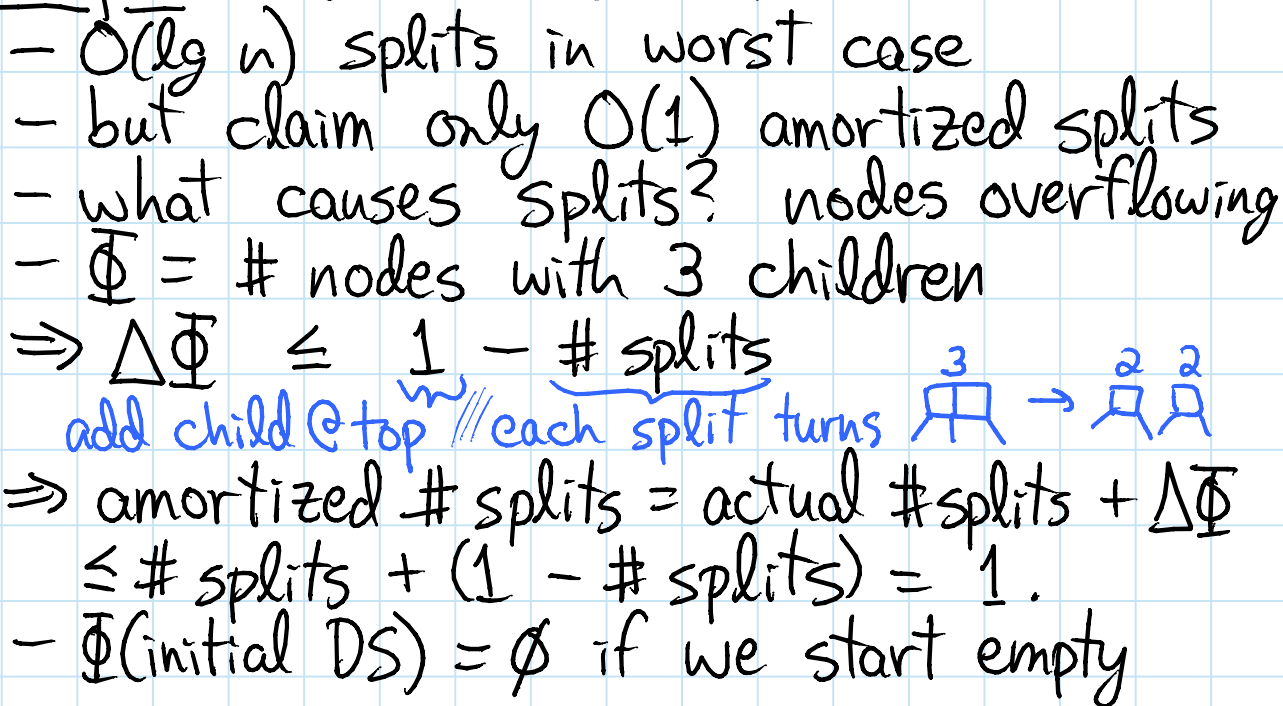 – O(lg n) splits in worst case
– but claim only O(1) amortized splits
– what causes splits? nodes overflowing
– Φ = # nodes with 3 children
⇒ ΔΦ ≤ 1 – # splits
3 2 2
add child @ top // each split turns →
⇒ amortized # splits = actual #splits + ΔΦ
≤ # splits + (1 – # splits) = 1.
– Φ(initial DS) = ∅ if we start empty